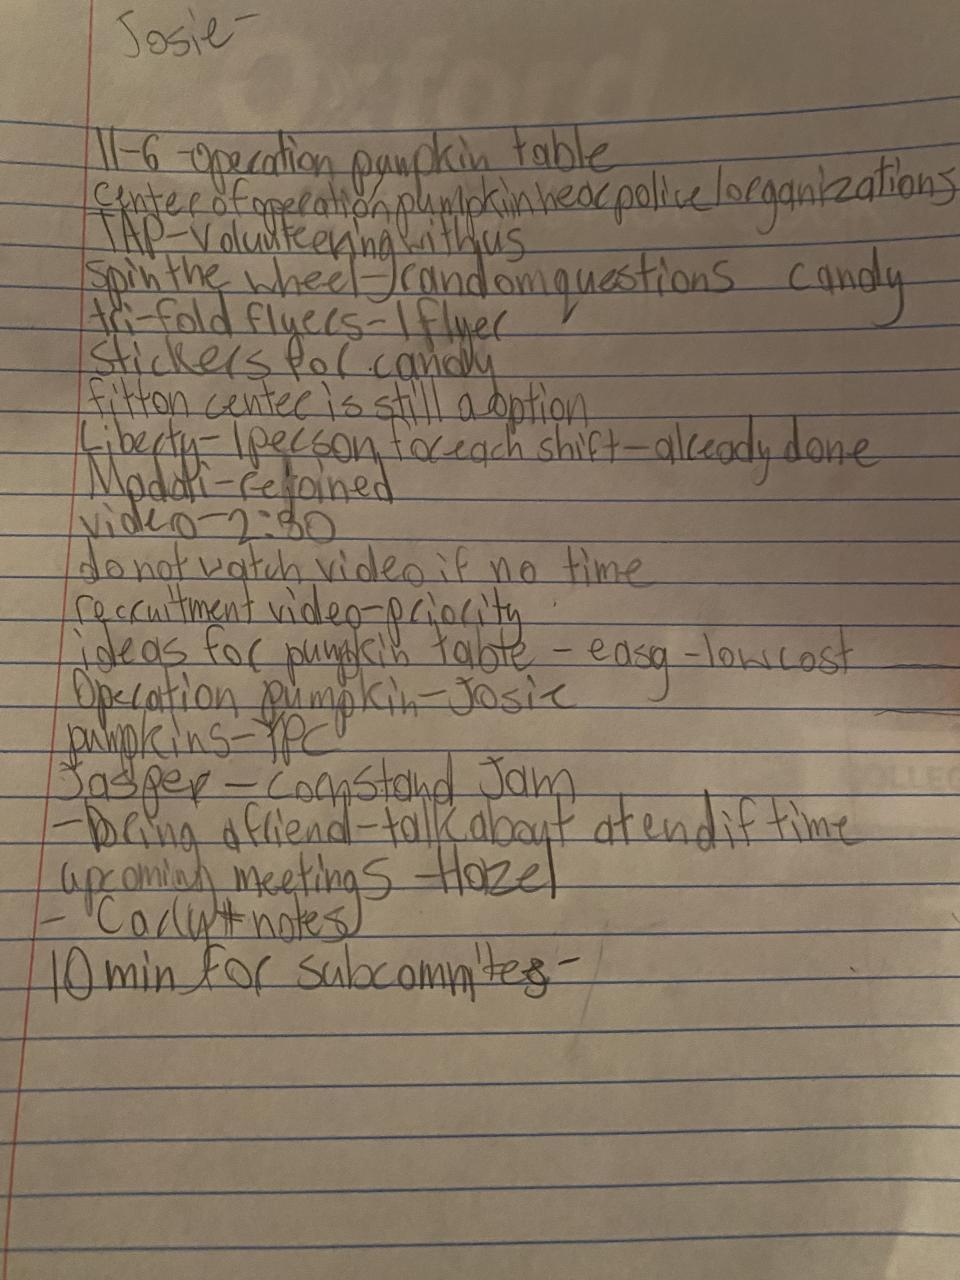 Josie-
11-6 -operation pumpkin table
center of operation pumpkin near police/organizations
TAP-Volunteering with us
Spin the wheel-random questions candy
tri-fold flyers-1 flyer
stickers for candy
fitton center is still a option
Liberty-1 person for each shift-already done
rejoined
video-2:30
do not watch video if no time
recruitment video-priority
ideas for pumpkin table - easy -low cost
Operation pumpkin-Josie
pumpkins-YPC
Jasper - cornstand Jam
-bring a friend-talk about at end if time
upcoming meetings -Hazel
- notes
10 min for subcommites-